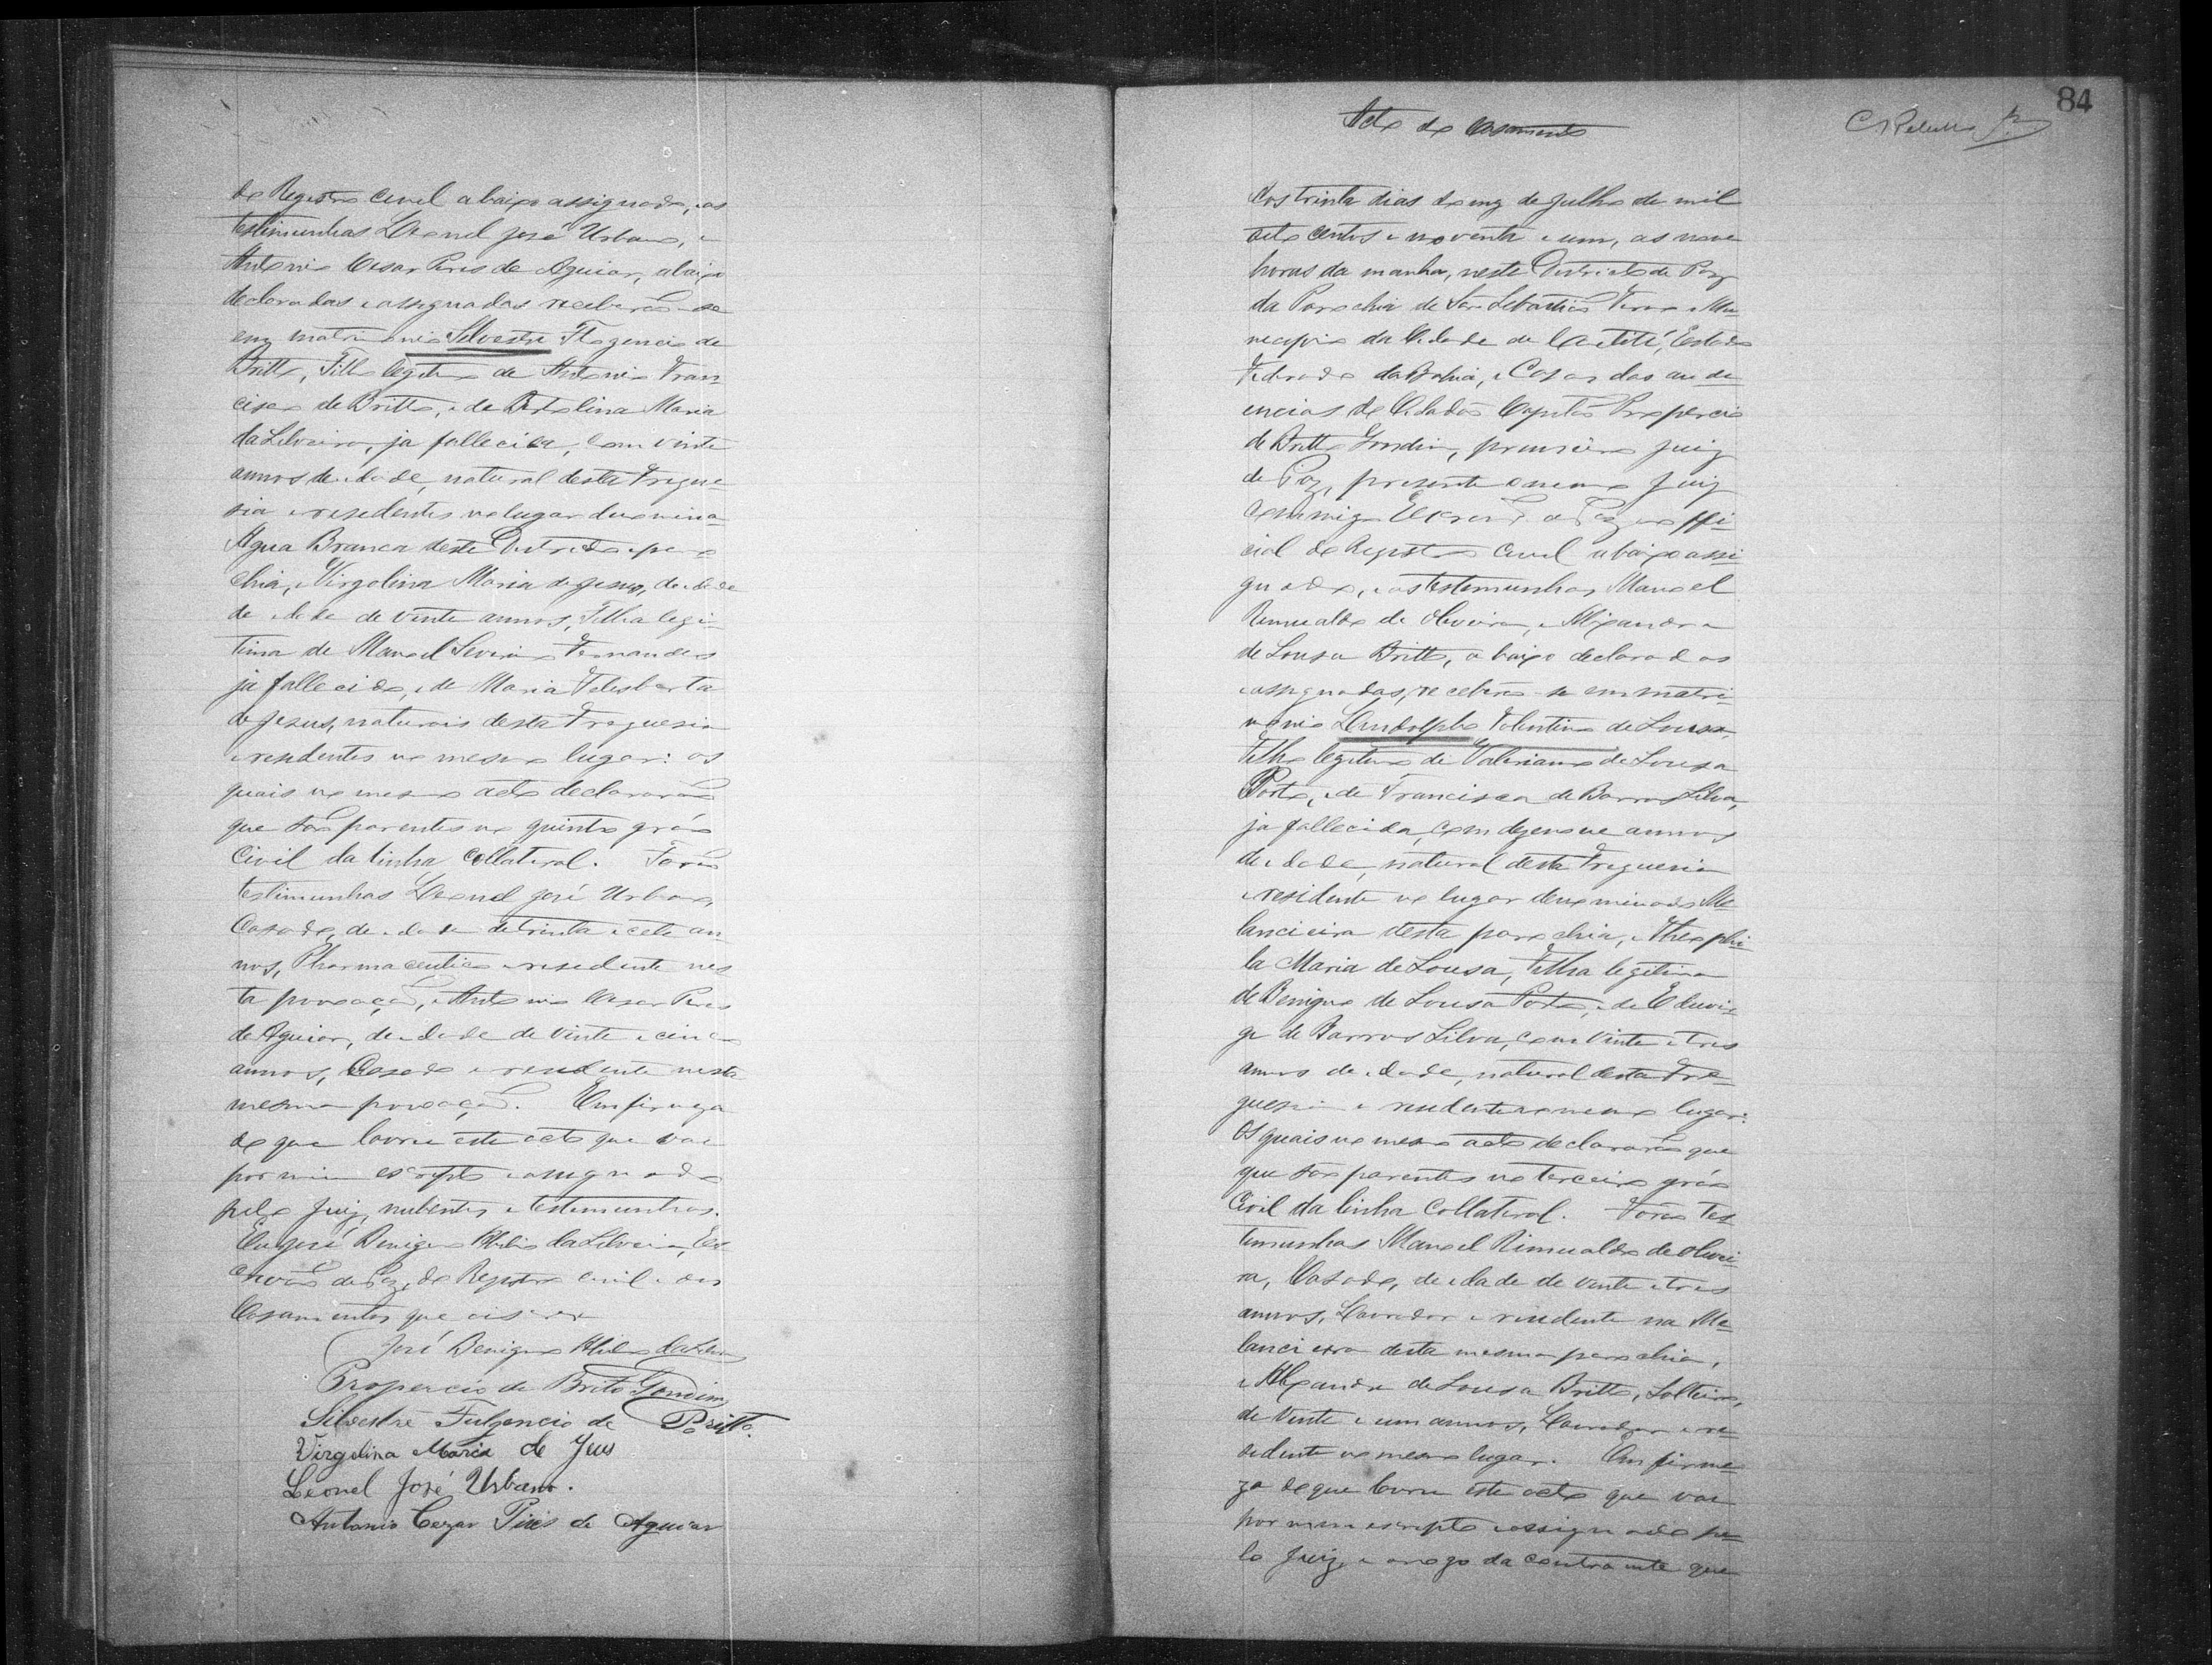 do Registro Civel abaixo assignado, e as
testimunhas Leonel José Urbano, e
Antonio Cesar Pires de Aguiar, abaixo
declaradas e assignadas receberão-se
em matrimonio Silvestre Flogencio de
Britto, Filho legitimo de Antonio Fran-
cisco de Britto, e de Bertolina Maria
da Silveira, ja fallecida, com vinte
annos de idade, natural desta Fregue-
sia e residentes no lugar denomina-
Agua Branca deste Districto e paro
chia, e Virgolina Maria de Jesus, de idade
de idade de vinte annos, Filha legi-
tima de Manoel Severino Fernandes
ja fallecido, e de Maria Felisberta
de Jesus, naturais desta Freguesia
e residentes no mesmo lugar: os
quais no mesmo acto declararão
que são parentes no quinto gráo
Civil da linha Collateral. Forão
testimunhas Leonel José Urbano,
Casado, de idade de trinta e cete an-
nos, Pharmaceutico e residente nes
ta povoação, e Antonio Cesar Pires
de Aguiar, de idade de vinte e cinco
annos, Casado e residente nesta
mesma povoação. Em firmeza
do que lavrei este acto que vai
por mim escripto e assignado
pelo Juiz, nubentes e testimunhas.
Eu José Benigno da Silveira, Es
crivão de Paz, do Registro Civil e dos
Casamentos que escrevi
José Benigno
Propercio de Brito Gondim
Silvestre Fulgencio de Britto.
Virgolina Maria de Jeus
Leonel José Urbano.
Antonio Cezar Pires de Aguiar
84
Acto de Casamento
Aos trinta dias do mez de Julho de mil
oito centos e noventa e um, as nove
horas da manha, neste Districto de Paz
da Parochia de São Sebastião Termo e Mu-
necipio da Cidade de Caetité, Estado
Federado da Bahia, e Casa das au de
encias do Cidadão Capitão Propercio
de Britto Gondim, primeiro Juiz
de Paz, presente o mesmo Juiz
commigo Escrivão de Paz e offi-
cial do Registro Civel abaixo assi-
gnado, e as testemunhas Manoel
Rimualdo de Oliveira, e Alixandre
de Sousa Britto, abaixo declaradas
e assignadas, receberão-se em matri-
monio Lindolpho Tolentino de Sousa,
Filho legitimo de Valeriano de Sousa
Porto, e de Francisca de Barros Silva,
ja fallecida, com dezenove annos
de idade, natural desta Freguesia
e residente no lugar denominado Me-
lancieira desta parochia, e Theophi-
la Maria de Sousa, Filha legitima
de Benigno de Sousa Porto, e de Eduvi-
ge de Barros Silva, com vinte e tres
annos de idade, natural desta Fre-
guesia e residente no mesmo lugar:
os quais no mesmo acto declararão que
que são parentes no terceiro gráo
Civil da linha Collateral. Forão tes
timunhas Manoel Rimualdo de Olivei-
ra, Casado, de idade de vinte e tres
annos, Lavrador e residente na Me-
lancieira desta mesma parochia,
e Alixandre de Sousa Britto, Solteiro,
de vinte e um annos, Lavrador e re-
sidente no mesmo lugar. Em firme-
za do que lavrei este acto que vai
por mim escripto e assignado pe-
lo Juiz, e a rogo da contraente que